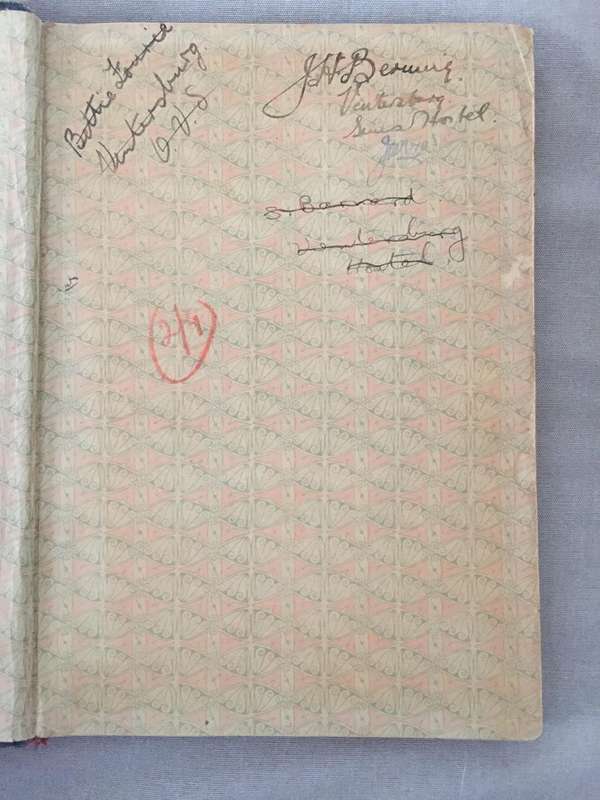 Bettie Lourie
Ventersburg
O.V.S
J.H. Berning.
Ventersburg
Hostel.
S. Barnard
Ventersburg
Hostel
2/9